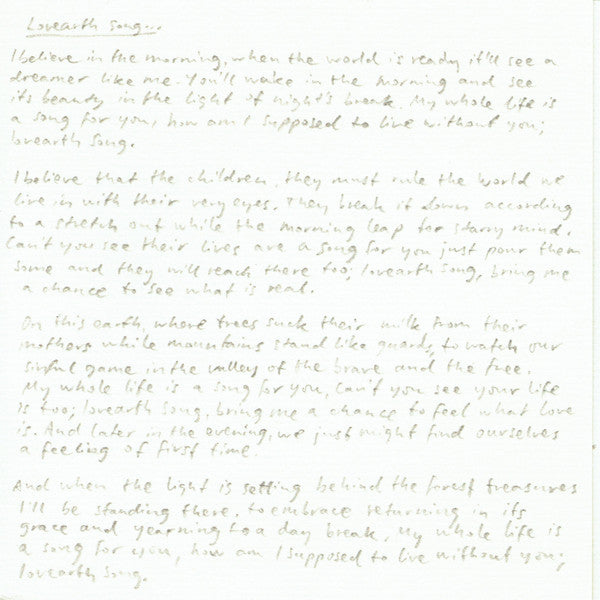 Lovearth song...
I believe in the morning, when the world is ready it'll see a
dreamer like me. You'll wake in the morning and see
its beauty in the light of night's break. My whole life is
a song for you, how am I supposed to live without you;
lovearth song.
I believe that the children, they must rule the world we
live in with their very eyes. They break it down according
to a stretch out while the morning leap for starry mind.
Can't you see their lives are a song for you just pour them
some and they will reach there too; lovearth song, bring me
a chance to see what is real.
On this earth, where trees suck their milk from their
mothers while mountains stand like guards, to watch our
sinful game in the valleys of the brave and the free.
My whole life is a song for you, can't you see your life
is too; lovearth song, bring me a chance to feel what love
is. And later in the evening, we just might find ourselves
a feeling of first time.
And when the light is setting behind the forest treasures
I'll be standing there, to embrace returning in its
grace and yearning to a day break. My whole life is
a song for you, how am I supposed to live without you;
lovearth song.